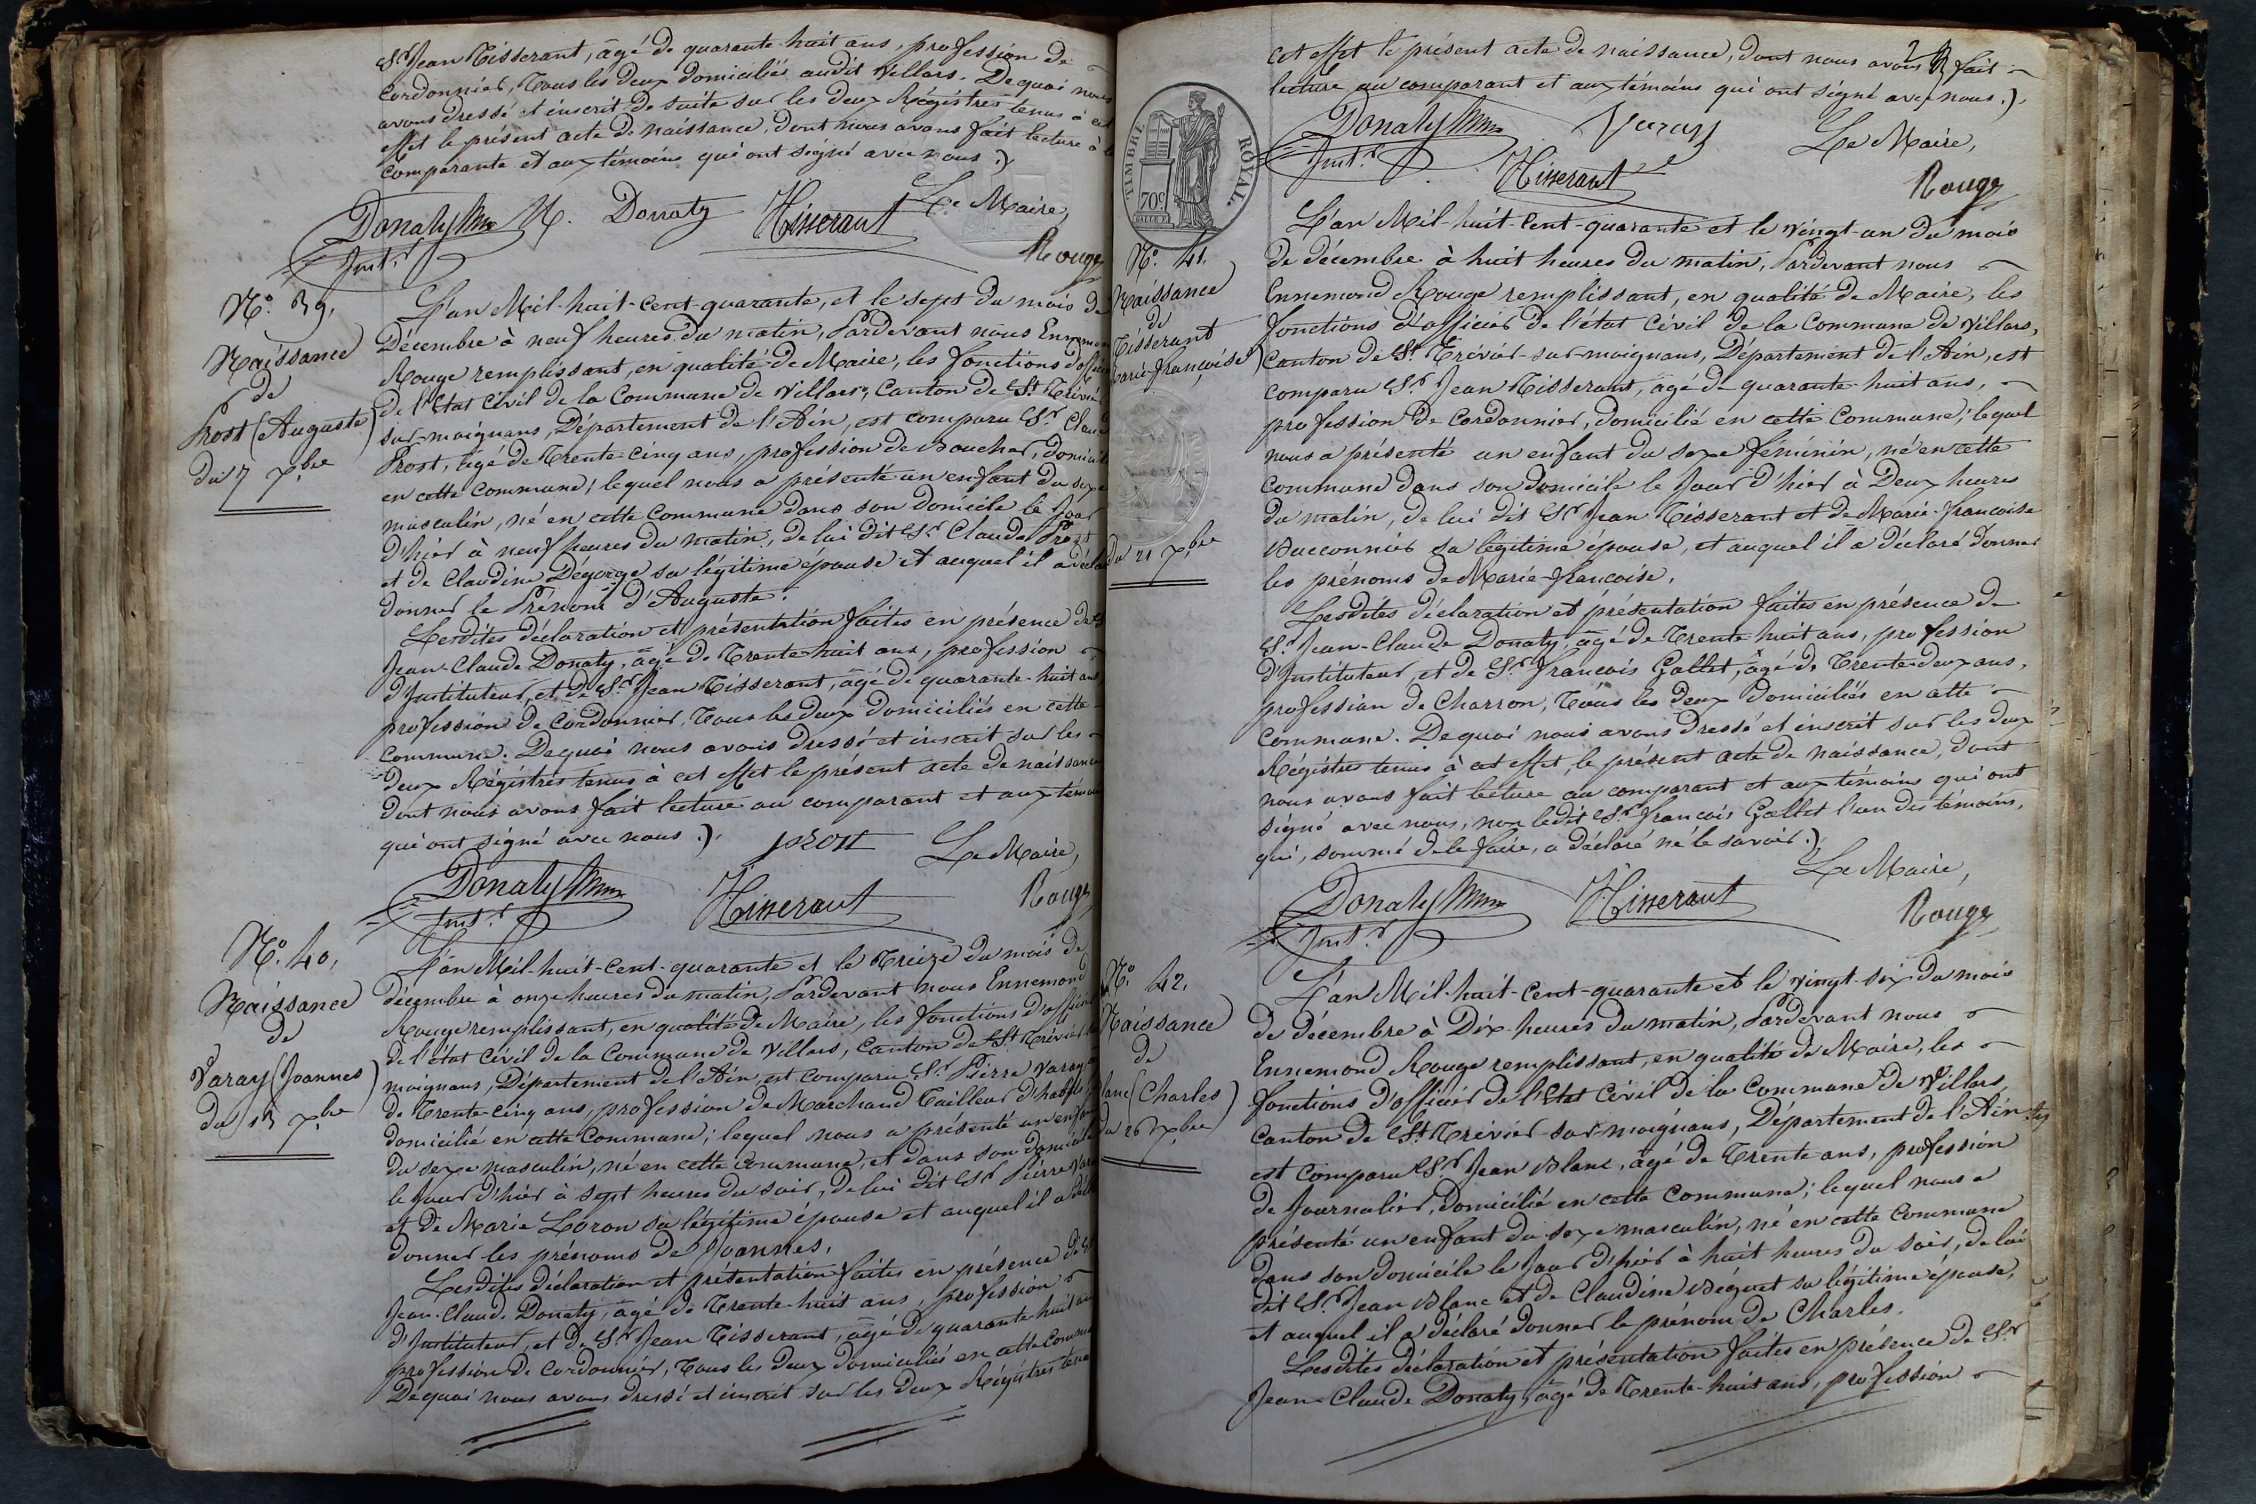 Sr. Jean Tisserant, âgé de quarante-huit ans, profession de
Cordonnier, tous les deux domiciliés audit Villars. De quoi nous
avons dressé et inscrit de suite sur les deux Régistres tenus à cet
effet le présent acte de naissance, dont nous avons fait lecture à la
comparante et aux témoins qui ont signé avec nous.
Donaty N. Donaty Tisserant Le Maire,
Inst.r Rouge
No. 39.
Naissance
de
Prost (Auguste)
du 7 Xbre
L'an Mil-huit-cent-quarante, et le sept du mois de
Décembre à neuf heures du matin, Pardevant nous Ennemond
Rouge remplissant, en qualité de Maire, les fonctions d'officier
de l'Etat Civil de la Commune de Villars, Canton de St. Trévier
sur-moignans, Département de l'Ain, est comparu Sr. Claude
Prost, âgé de trente-cinq ans, profession de Boucher, domicilié
en cette Commune; lequel nous a présenté un enfant du sexe
masculin, né en cette Commune dans son domicile le jour
d'hier à neuf heures du matin, de lui dit Sr. Claude Prost
et de Claudine Dégorge sa légitime épouse et auquel il a déclaré
donner le Prénom d'Auguste.
Lesdites déclaration et présentation faites en présence de Sr
Jean-Claude Donaty, âgé de trente-huit ans, profession
d'Instituteur, et de Sr. Jean Tisserant, âgé de quarante-huit ans
profession de Cordonnier, tous les deux domiciliés en cette
commune. De quoi nous avons dressé et inscrit sur les
deux Régistres tenus à cet effet le présent acte de naissance
dont nous avons fait lecture au comparant et aux témoins
qui ont signé avec nous.
prost Le Maire,
Donaty Tisserant Rouge
Inst.r
No. 40.
Naissance
de
Varay (Joannes)
du 13 Xbre
L'an Mil-huit-cent-quarante et le treize du mois de
décembre à onze heures du matin, Pardevant nous Ennemond
Rouge remplissant, en qualité de Maire, les fonctions d'officier
de l'état civil de la Commune de Villars, Canton de St. Trévier
moignans, Département de l'Ain, est comparu Sr. Pierre Varay
de trente-cinq ans, profession de Marchand Tailleur d'habits
domicilié en cette Commune; lequel nous a présenté un enfant
du sexe masculin, né en cette commune, et dans son domicile
le jour d'hier à sept heures du soir, de lui dit Sr. Pierre Varay
et de Marie Loron sa légitime épouse et auquel il a déclaré
donner les prénoms de Joannes.
Lesdites déclaration et présentation faites en présence de Sr
Jean-Claude Donaty, âgé de trente-huit ans, profession
d'Instituteur, et de Sr. Jean Tisserant, âgé de quarante-huit ans
profession de Cordonnier, tous les deux domiciliés en cette Commune
De quoi nous avons dressé et inscrit sur les deux Régistres tenus
cet effet le présent acte de naissance, dont nous avons fait
lecture au comparant et aux témoins qui ont signé avec nous.
Donaty Varay Le Maire,
Inst.r Tisserant Rouge
TIMBRE ROYAL
70c
No. 41.
Naissance
de
Tisserant
Marie-françoise
du 21 Xbre
L'an Mil-huit-cent-quarante et le vingt-un du mois
de décembre à huit heures du matin, Pardevant nous
Ennemond Rouge remplissant, en qualité de Maire, les
fonctions d'officier de l'état civil de la Commune de Villars,
Canton de St. Trévier-sur-moignans, Département de l'Ain, est
comparu Sr. Jean Tisserant, âgé de quarante-huit ans,
profession de Cordonnier, domicilié en cette Commune; lequel
nous a présenté un enfant du sexe féminin, né en cette
commune dans son domicile le jour d'hier à Deux heures
du matin, de lui dit Sr. Jean Tisserant et de Marie-francoise
Buconnier sa légitime épouse, et auquel il a déclaré donner
les prénoms de Marie-françoise.
Lesdites déclaration et présentation faites en présence de
Sr. Jean-Claude Donaty, âgé de trente-huit ans, profession
d'Instituteur, et de Sr. francois Gallet, âgé de trente-deux ans,
profession de Charron, tous les deux domiciliés en cette
commune. De quoi nous avons dressé et inscrit sur les deux
Régistres tenus à cet effet, le présent acte de naissance, dont
nous avons fait lecture au comparant et aux témoins qui ont
signé avec nous, non ledit Sr. francois Gallet l'un des témoins,
qui, sommé de le faire, a déclaré ne le savoir.
Le Maire,
Donaty Tisserant Rouge
Inst.r
No. 42.
Naissance
de
Blanc (Charles)
du 26 Xbre
L'an Mil-huit-cent-quarante et le vingt-six du mois
de décembre à Dix-heures du matin, Pardevant nous
Ennemond Rouge remplissant, en qualité de Maire, les
fonctions d'officier de l'Etat Civil de la Commune de Villars,
Canton de St. Trévier-sur moignans, Département de l'Ain
est comparu Sr. Jean Blanc, âgé de trente ans, profession
de Journalier, domicilié en cette Commune; lequel nous a
présenté un enfant du sexe masculin, né en cette Commune
dans son domicile le jour d'hier à huit heures du soir, de lui
dit Sr. Jean Blanc et de Claudine Béguet sa légitime épouse,
et auquel il a déclaré donner le prénom de Charles.
Lesdites déclaration et présentation faites en présence de Sr.
Jean-Claude Donaty, âgé de trente-huit ans, profession